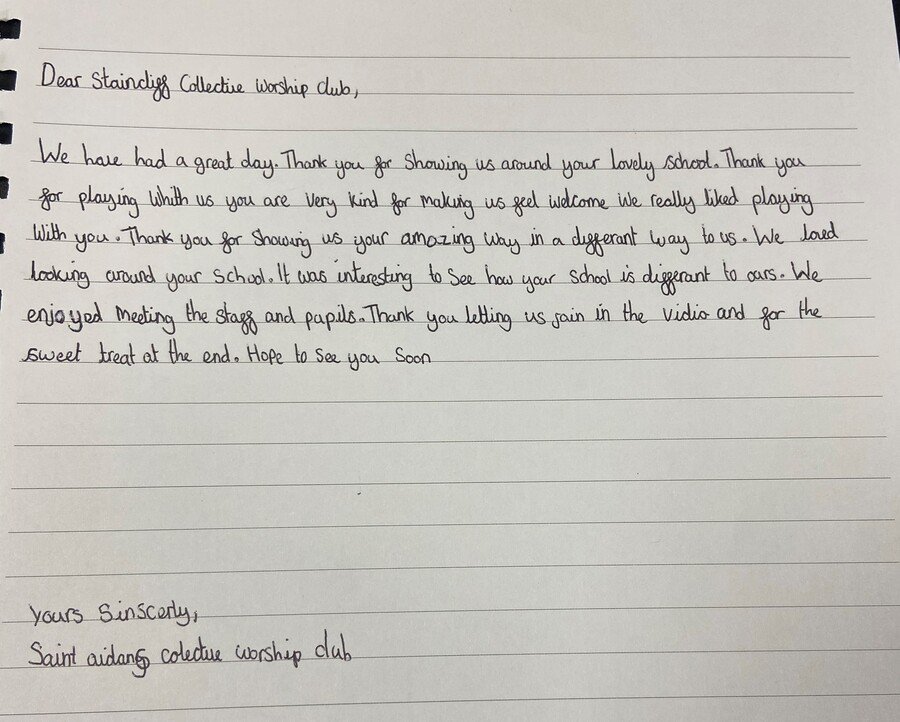 Dear Staincliff Collective worship club,
We have had a great day. Thank you for Showing us around your lovely school. Thank you
for playing Whith us you are very kind for making us feel welcome we really liked playing
With you. Thank you for Showing us your amazing way in a differant way to us. We loved
looking around your School. It was interesting to See how your School is differant to ours. We
enjoyed Meeting the staff and pupils. Thank you letting us join in the vidio and for the
sweet treat at the end. Hope to See you Soon
yours Sinscerly,
Saint aidans colective worship club